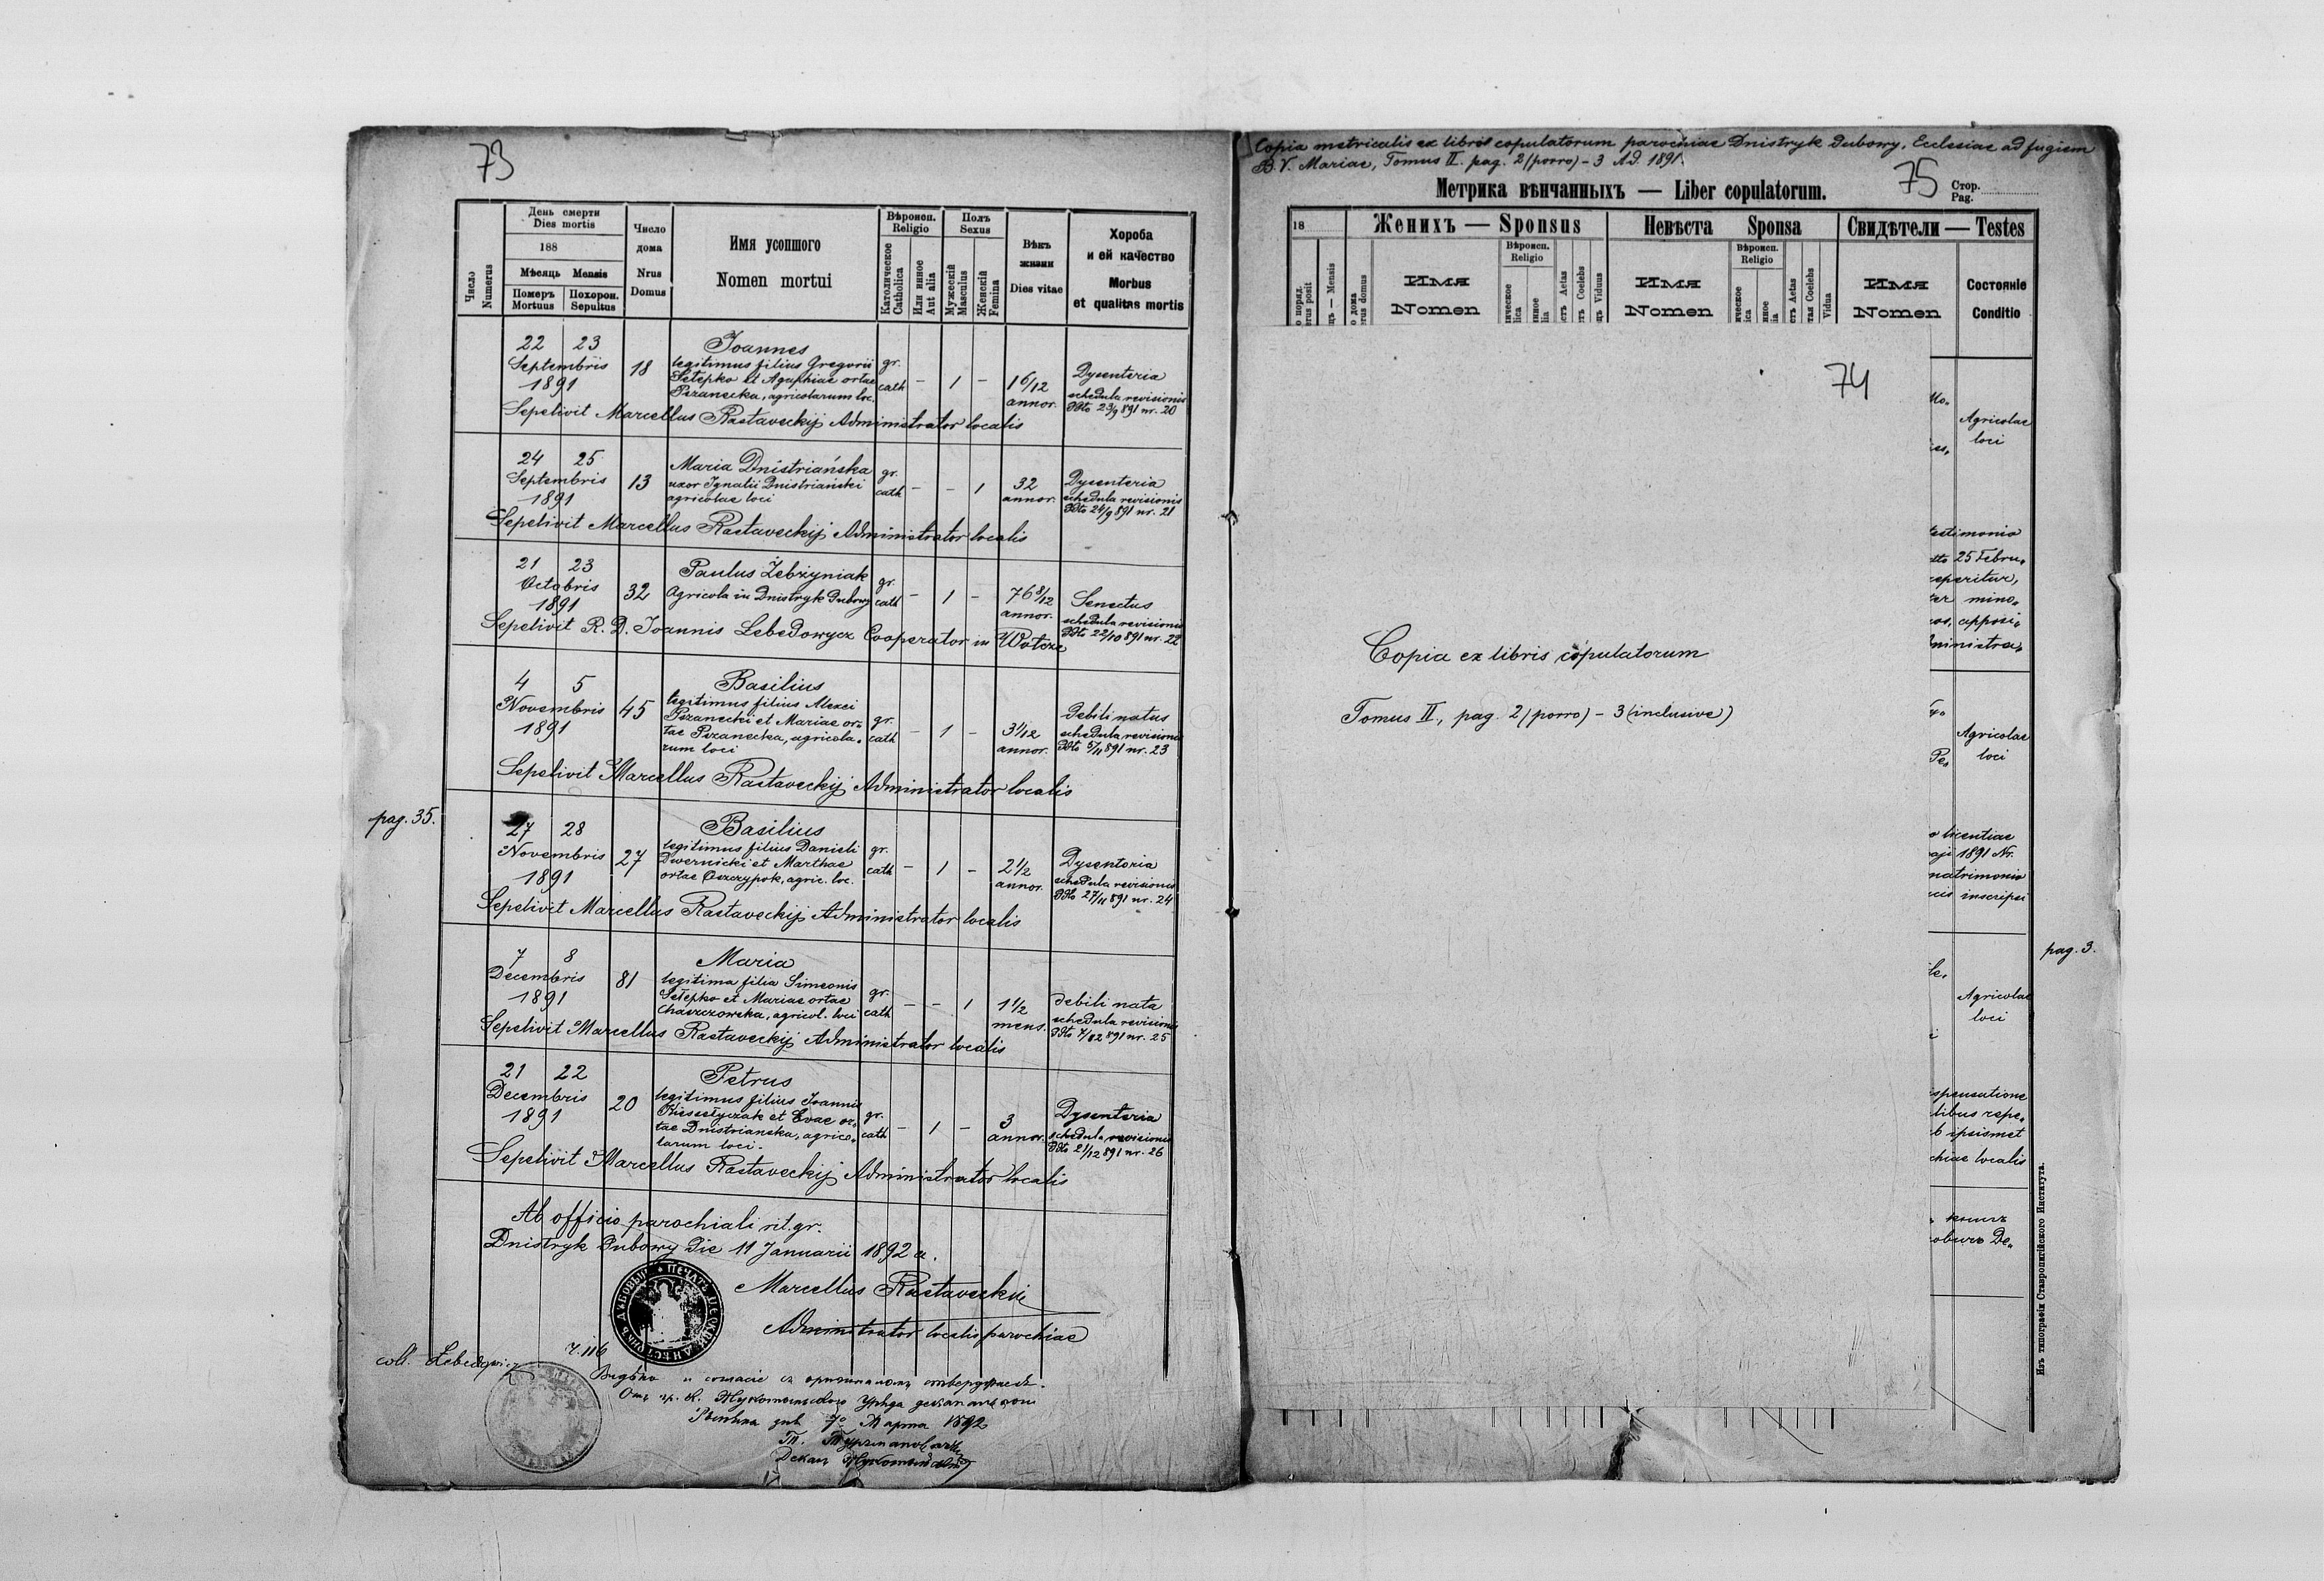 73
День смерти
Dies mortis
188
Мѣсяць Mensis
Померъ Mortuus
Похорон. Sepultus
Число Numerus
Число дома
Nrus Domus
Имя усопшого
Nomen mortui
Вѣроисп. Religio
Католическое Catholica
Или инное Aut alia
Полъ Sexus
Мужескій Masculus
Женскій Femina
Вѣкъ жизни
Dies vitae
Хороба и ей качество
Morbus et qualitas mortis
22 23
Septembris
1891
18
Joannes
legitimus filius Gregorii
Setepko et Agaphiae ortae
Pzanecka, agricolarum loc.
gr. cath
–
1
–
1 6/12 annor.
Dysenteria
schedula revisionis
ddto 23/9 891 nr. 20
Sepelivit Marcellus Rastaveckij Administrator localis
24 25
Septembris
1891
13
Maria Dnistriańska
uxor Ignatii Dnistriański
agricolae loci
gr. cath
–
–
1
32 annor.
Dysenteria
schedula revisionis
ddto 24/9 891 nr. 21
Sepelivit Marcellus Rastaveckij Administrator localis
21 23
Octobris
1891
32
Paulus Żebżyniak
Agricola in Dnistryk Dubowy
gr. cath
–
1
–
76 8/12 annor.
Senectus
schedula revisionis
ddto 22/10 891 nr. 22
Sepelivit R. D. Joannis Lebedowycz Cooperator in Wołcze
4 5
Novembris
1891
45
Basilius
legitimus filius Alexei
Pzanecki et Mariae or-
tae Pzanecka, agricola-
rum loci
gr. cath
–
1
–
3 1/12 annor.
debili natus
schedula revisionis
ddto 5/11 891 nr. 23
Sepelivit Marcellus Rastaveckij Administrator localis
pag. 35.
27 28
Novembris
1891
27
Basilius
legitimus filius Danieli
Dwernicki et Marthae
ortae Oszczypok, agric. loc.
gr. cath
–
1
–
2 1/2 annor.
Dysenteria
schedula revisionis
ddto 27/11 891 nr. 24
Sepelivit Marcellus Rastaveckij Administrator localis
7 8
Decembris
1891
81
Maria
legitima filia Simeonis
Setepko et Mariae ortae
Chaszczowska, agricol. loci
gr. cath
–
–
1
1 1/2 mens.
debili nata
schedula revisionis
ddto 7/12 891 nr. 25
Sepelivit Marcellus Rastaveckij Administrator localis
21 22
Decembris
1891
20
Petrus
legitimus filius Joannis
Kisiełyczak et Evae or-
tae Dnistrianska, agrico-
larum loci.
gr. cath
–
1
–
3 annor.
Dysenteria
schedula revisionis
ddto 21/12 891 nr. 26
Sepelivit Marcellus Rastaveckij Administrator localis
Ab officio parochiali rit. gr.
Dnistryk Dubowy Die 11 Januarii 1892 a.
Marcellus Rastaveckij
Administrator localis parochiae
coll. Lebedowicz
Ч. 116
Видѣно и согласіе съ оригиналомъ
7 Марта 1892
Декан
Copia metricalis ex libris copulatorum parochiae Dnistryk dubowy, Ecclesiae ad fugiem
B. V. Mariae, Tomus II. pag. 2 (porro) – 3 A.D. 1891.
Метрика вѣнчанныхъ — Liber copulatorum.
75
Стор.
Pag.
18
Женихъ — Sponsus
Невѣста Sponsa
Свидѣтели — Testes
Имя
Nomen
Вѣроисп.
Religio
Имя
Nomen
Вѣроисп.
Religio
Имя
Nomen
Состояніе
Conditio
74
Copia ex libris copulatorum
Tomus II, pag. 2 (porro) – 3 (inclusive)
Agricolae
loci
testimonio
25 Febru-
reperitur,
mino-
apposi-
ministra-
Agricolae
loci
licentiae
1891 Nr.
matrimonio
inscripsi
pag. 3.
Agricolae
loci
ispensatione
tibus repe-
b ipsismet
chiae localis
Изъ типографіи Ставропигійского Института.